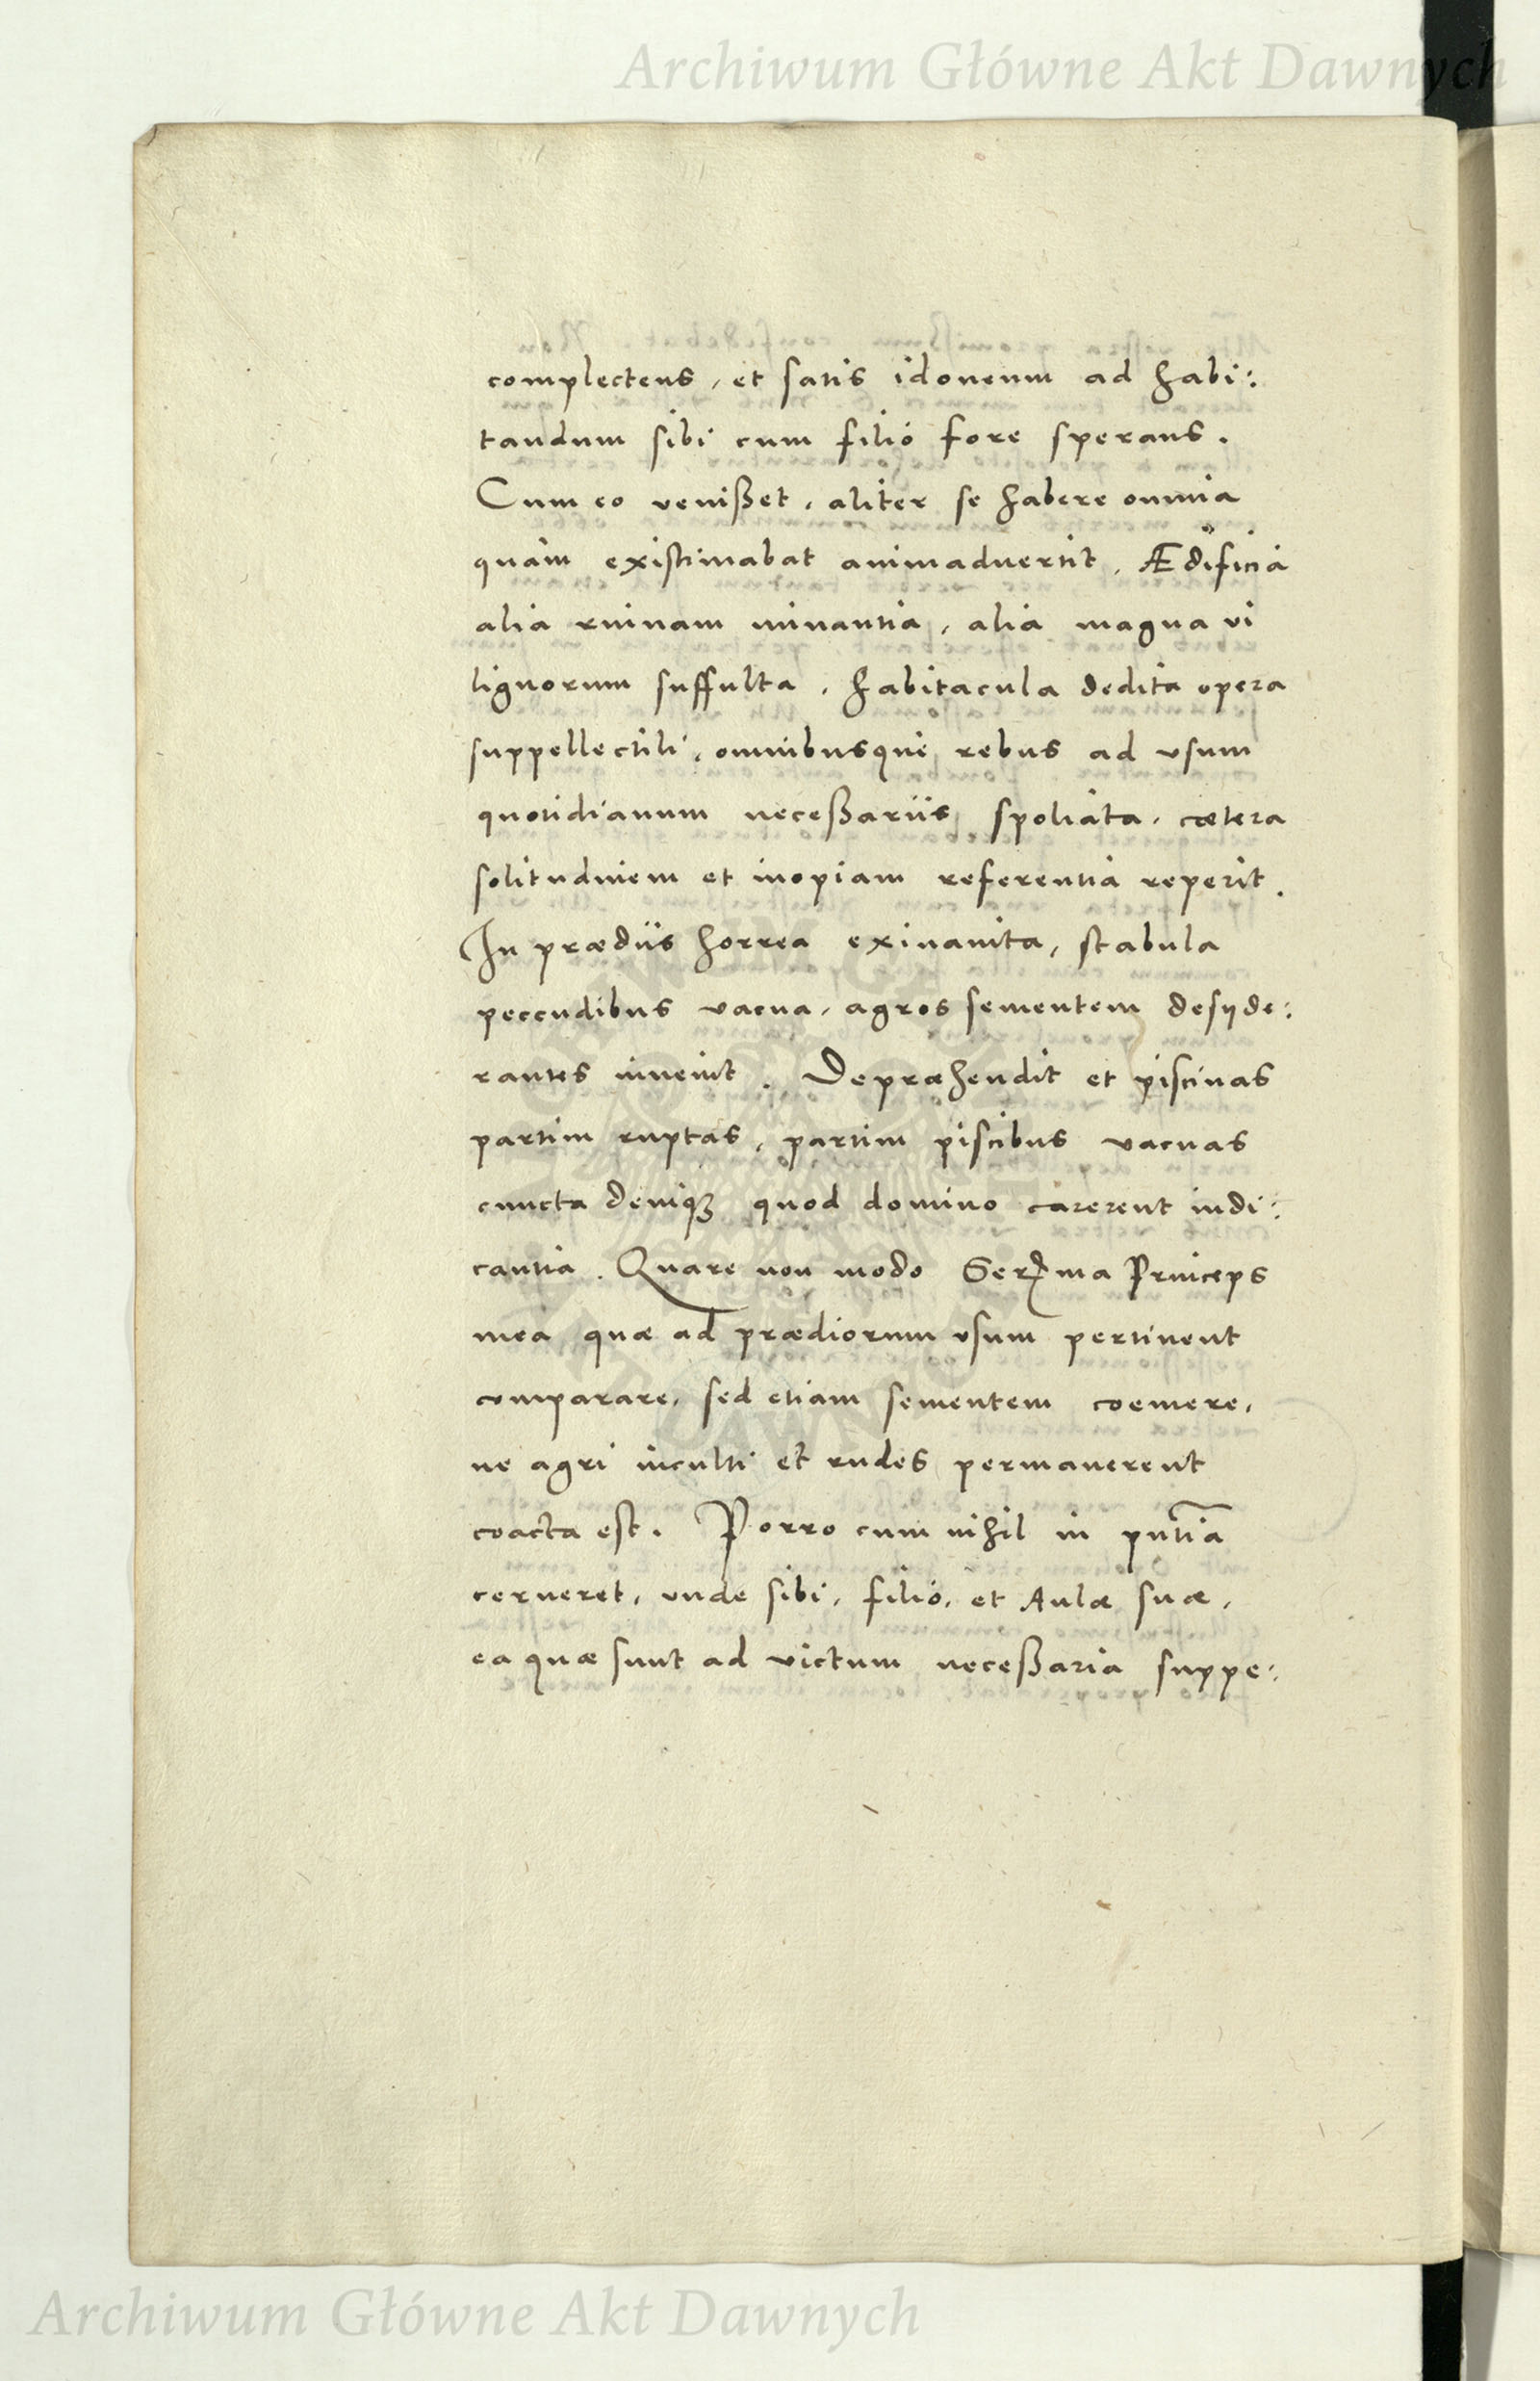 Archiwum Główne Akt Dawnych
complectens, et satis idoneum ad habi:
tandum sibi cum filio fore sperans.
Cum eo venißet, aliter se habere omnia
quàm existimabat animaduertit. Ædificia
alia ruinam minantia, alia magna vi
lignorum suffulta, habitacula dedita opera
suppellectili, omnibusque rebus ad vsum
quotidianum neceßariis spoliata, cætera
solitudinem et inopiam referentia reperit.
In prædiis horrea exinanita, stabula
peccudibus vacua, agros sementem desyde:
rantes inuenit. Depræhendit et piscinas
partim ruptas, partim piscibus vacuas
cuncta deniqꝫ quod domino carerent indi:
cantia. Quare non modo Serma Princeps
mea quæ ad prædiorum vsum pertinent
comparare, sed etiam sementem coemere,
ne agri inculti et rudes permanerent
coacta est. Porro cum nihil in pntia
cerneret, vnde sibi, filio, et Aulæ suæ,
ea quæ sunt ad victum neceßaria suppe:
Archiwum Główne Akt Dawnych